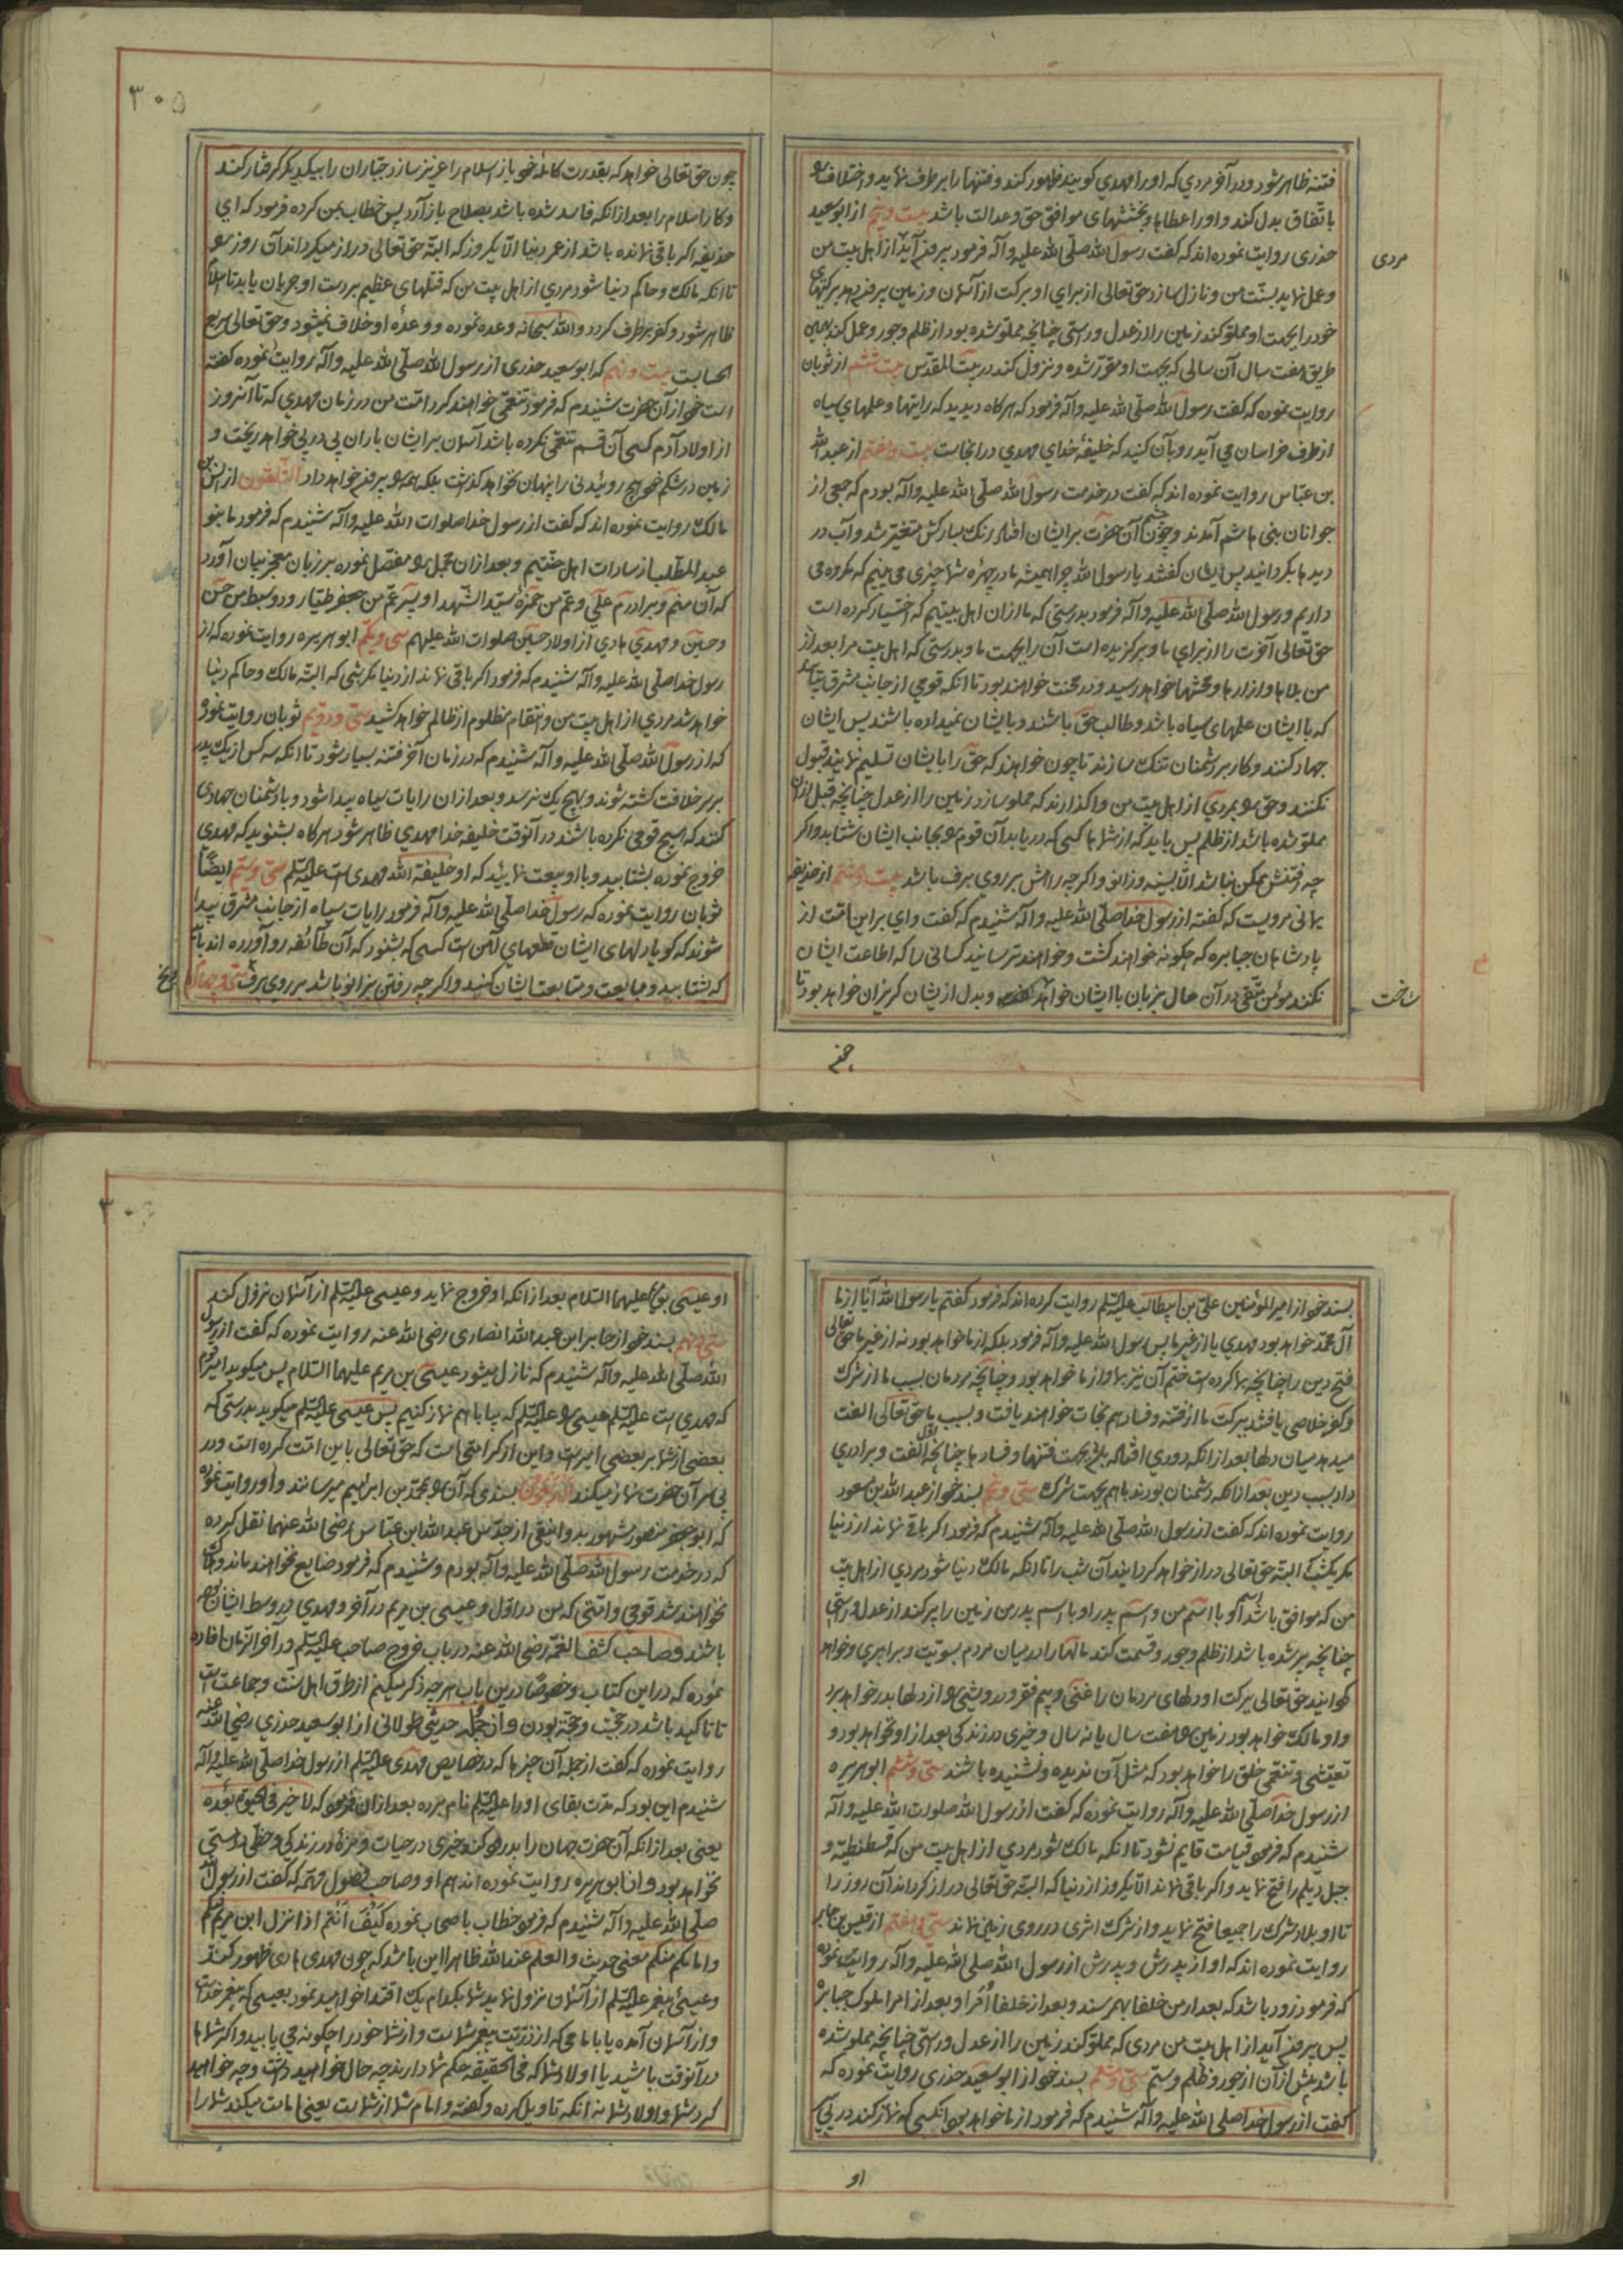 فتنه ظاهر شود و در آخر مردي كه او را مهدي كويند ظهور كند و فتنها را برطرف نمايد و اختلاف را
باتّفاق بدل كند و او را عطاها و بخششهاى موافق حق و عدالت باشد بيست و پنجم از ابو سعيد
خدرى روايت نموده اند كه گفت رسول الله صلّى الله عليه و آله فرمود بيرون آيد از اهل بيت من
مردى
و عمل نمايد بسنّت من و نازل سازد حق تعالى از براي او بركت از آسمان و زمين بيرون دهد بركتهاى
خود را بجهت او مملوّ كند زمين را از عدل و راستى چنانچه مملوّ شده بود از ظلم و جور و عمل كند بهمين
طريق هفت سال آن سالى كه بجهت او مقرّر شده و نزول كند در بيت المقدّس بيست و ششم از ثوبان
روايت نموده كه گفت رسول الله صلّى الله عليه و آله فرمود كه هركاه ديديد كه رايتها و علمهاي سياه
از طرف خراسان مي آيد رو بآن كنيد كه خليفهٔ خداي مهدي در انجاست بيست و هفتم از عبد الله
بن عبّاس روايت نموده اند كه گفت در خدمت رسول الله صلّى الله عليه و آله بودم كه جمعى از
جوانان بنى هاشم آمدند و چون چشم آن حضرت بر ايشان افتاد رنك مباركش متغيّر شد و آب در
ديدها بكردانيد پس ايشان كفتند يا رسول الله چرا هميشه ما در چهرهٔ شما چيزى مى بينيم كه مكروه مى
داريم و رسول الله صلّى الله عليه و آله فرمود بدرستى كه ما ازان اهل بيتيم كه اختيار كرده است
حق تعالى آخرت را از براي ما و بركزيده است آن را بجهت ما و بدرستى كه اهل بيت مرا بعد از
من بلاها و ازارها و محنتها خواهد رسيد و در محنت خواهند بود تا انكه قومي از جانب مشرق بيايند
كه با ايشان علمهاى سياه باشد و طالب حق باشند و بايشان نميداده باشند پس ايشان
جهاد كنند و كار بر دشمنان تنك سازند تا چون خواهند كه حق را بايشان تسليم نمايند قبول
نكنند و حق را بمردي از اهل بيت من واكذارند كه مملو سازد زمين را از عدل چنانچه قبل ازان
مملوّ شده باشد از ظلم پس بايد كه از شما ها كسى كه دريابد آن قوم را بجانب ايشان شتابد و اكر
چه رفتنش ممكن نباشد الّا بسينه و زانو و اكر چه راهش بر روي برف باشد بيست و هشتم از حذيفه
يمانى مرويست كه كفته از رسول خدا صلّى الله عليه و آله شنيدم كه كفت واي بر اين امّت از
پادشاهان جبابره كه چكونه خواهند كشت و خواهند ترسانيد كسانى را كه اطاعت ايشان
نكنند مؤمن متّقى در آن حال بزبان با ايشان خواهد و بدل از ايشان كريزان خواهد بود تا
ساخت
چون
۳۰۵
چون حق تعالى خواهد كه بقدرت كامله خود باز اسلام را عزيز سازد جبّاران را بيكديكر كرفتار كند
و كار اسلام را بعد از انكه فاسد شده باشد بصلاح باز آرد پس خطاب بمن كرده فرمود كه اي
حذيفه اكر باقى نمانده باشد از عمر دنيا الّا يكروز كه البتّه حق تعالى دراز ميكرداند آن روز را
تا انكه مالك و حاكم دنيا شود مردي از اهل بيت من كه قتلهاى عظيم بر دست او جريان يابد تا اسلام
ظاهر شود و كفر برطرف كردد و الله سبحانه وعده نموده و وعدهٔ او خلاف نميشود و حق تعالى سريع
الحسابست بيست و نهم كه ابو سعيد خدرى از رسول الله صلّى الله عليه و آله روايت نموده كفته
است خود از آن حضرت شنيدم كه فرمود تنعّمى خواهند كرد امّت من در زمان مهدي كه تا آنروز
از اولاد آدم كسى آن قسم تنعّمى نكرده باشد آسمان بر ايشان باران پى در پى خواهد ريخت و
زمين در شكم خود هيچ روئيدنى را پنهان نخواهد كذاشت بلكه همه را بيرون خواهد داد الثلثون از انس بن
مالك روايت نموده اند كه كفت از رسول خدا صلوات الله عليه و آله شنيدم كه فرمود ما بنو
عبد المطّلب از سادات اهل جنّتيم و بعد ازان مجمل را مفصّل نموده بر زبان معجز بيان آورد
كه آن منم و برادرم علي و عمّ من حمزه سيّد الشّهدا و پسر عمّ من جعفر طيّار و دو سبط من حسن
و حسين و مهدي هادي از اولاد حسين صلوات الله عليهم سى و يكم ابو هريره روايت نموده كه از
رسول خدا صلى الله عليه و آله شنيدم كه فرمود اكر باقى نماند از دنيا مكر شبى كه البتّه مالك و حاكم دنيا
خواهد شد مردي از اهل بيت من و انتقام مظلوم از ظالم خواهد كشيد سى و دويم ثوبان روايت نموده
كه از رسول الله صلّى الله عليه و آله شنيدم كه در زمان آخر فتنه بسيار شود تا انكه سه كس از يك پدر
بر سر خلافت كشته شوند و بهيچ يك نرسد و بعد ازان رايات سياه پيدا شود و با دشمنان جهادى
كنند كه هيچ قومى نكرده باشند در آنوقت خليفه خدا مهدي ظاهر شود هركاه بشنويد كه مهدى
خروج نموده بشتابيد و با او بيعت نمائيد كه او خليفة الله مهدى است عليه السّلم سى و سيّم ايضًا
ثوبان روايت نموده كه رسول خدا صلّى الله عليه و آله فرمود رايات سياه از جانب مشرق پيدا
شوند كه كويا دلهاى ايشان قطعهاي آهن است كسى كه بشنود كه آن طائفه رو آورده اند بايد
كه بشتابيد و مبايعت و متابعت ايشان كنيد و اكر چه رفتن بزانو باشد بر روي برف سى و چهارم
بسند خود از امير المؤمنين علىّ بن ابيطالب عليه السّلم روايت كرده اند كه فرمود كفتم يا رسول الله آيا از ما
آل محمّد خواهد بود مهدي يا از غير ما پس رسول الله عليه و آله فرمود بلكه از ما خواهد بود نه از غير ما حق تعالى
فتح دين را چنانچه بما كرده است ختم آن نيز بما و از ما خواهد بود و چنانچه مردمان بسبب ما از شرك
و كفر خلاصى يافتند ببركت ما از فتنه و فساد هم نجات خواهند يافت و بسبب ما حق تعالى الفت
ميدهد ميان دلها بعد از انكه دوري افتاده باشد بجهت فتنها و فسادها چنانچه اوّل الفت و برادري
داد بسبب دين بعد از انكه دشمنان بودند با هم بجهت شرك سى و پنجم بسند خود از عبد الله بن مسعود
روايت نموده اند كه كفت از رسول الله صلّى الله عليه و آله شنيدم كه فرمود اكر باقى نماند از دنيا
مكر يكشب كه البتّه حق تعالى دراز خواهد كردانيد آن شب را تا انكه مالك دنيا شود مردي از اهل بيت
من كه موافق باشد اسم او با اسم من و اسم پدر او با اسم پدر من زمين را پر كند از عدل و راستى
چنانچه پر شده باشد از ظلم و جور و قسمت كند مالها را در ميان مردم بسويّت و برابري و خواهد
كردانيد حق تعالى ببركت او دلهاى مردمان را غنى و بيم فقر و درويشى را از دلها بدر خواهد برد
و او مالك خواهد بود زمين را هفت سال يا نه سال و خيرى در زندكى بعد از او نخواهد بود و
تعيّشى و تنعّمى خلق را خواهد بود كه مثل آن نديده و نشنيده باشند سى و ششم ابو هريره
از رسول خدا صلّى الله عليه و آله روايت نموده كه كفت از رسول الله صلوات الله عليه و آله
شنيدم كه فرمود قيامت قايم نشود تا انكه مالك شود مردي از اهل بيت من كه قسطنطنيّه و
جبل ديلم را فتح نمايد و اكر باقى نماند الّا يكروز از دنيا كه البتّه حق تعالى دراز كرداند آن روز را
تا او بلاد شرك را جميعا فتح نمايد و از شرك اثرى در روى زمين نماند سى و هفتم از قيس بن جابر
روايت نموده اند كه او از پدرش و پدرش از رسول الله صلى الله عليه و آله روايت نموده
كه فرمود زود باشد كه بعد از من خلفا بهم رسند و بعد از خلفا اُمَرا و بعد از امرا ملوك جبابره
پس بيرون آيد از اهل بيت من مردى كه مملوّ كند زمين را از عدل و راستى چنانچه مملو شده
باشد پيش از آن از جور و ظلم و ستم سى و هشتم بسند خود از ابو سعيد خدرى روايت نموده كه
كفت از رسول خدا صلى الله عليه و آله شنيدم كه فرمود از ما خواهد بود انكسى كه نماز كند در پي
او
او عيسى بن مريم عليهما السّلام بعد از انكه او خروج نمايد و عيسى عليه السّلم از آسمان نزول كند
سى و نهم بسند خود از جابر ابن عبد الله انصارى رضى الله عنه روايت نموده كه كفت از رسول
الله صلّى الله عليه و آله شنيدم كه نازل ميشود عيسى بن مريم عليهما السّلام پس ميكويد امير قوم
كه مهدي است عليه السّلم عيسى را عليه السّلم كه بيا با هم نماز كنيم پس عيسى عليه السّلم ميكويد بدرستى كه
بعضى از شما بر بعضى اميرست و اين از كرامتى است كه حق تعالى باين امّت كرده است و در
پى سر آن حضرت نماز ميكند الاربعون بسندى كه آن را بمحمّد بن ابراهيم ميرسانند و او روايت نموده
كه ابو جعفر منصور مشهور بدوانيقى از جدّش عبد الله ابن عبّاس رضى الله عنهما نقل كرده
كه در خدمت رسول الله صلّى الله عليه و آله بودم و شنيدم كه فرمود ضايع نخواهند ماند و هلاك
نخواهند شد قومي و امّتى كه من در اوّل و عيسى بن مريم در آخر و مهدي در وسط ايشان بوده
باشند و صاحب كشف الغمّه رضى الله عنه در باب خروج صاحب عليه السّلم در آخر الزمان افاده
نموده كه در اين كتاب و خصوصًا درين باب هر چه ذكر ميكنم از طرق اهل سنّت و جماعت است
تا تاكيد باشد در حجّيت و حجّة بودن و از جمله حديثى طولانى از ابو سعيد خدرى رضى الله عنه
روايت نموده كه كفت از جمله آن چيزها كه در خصايص مهدى عليه السّلم از رسول خدا صلى الله عليه و آله
شنيدم اين بود كه مدّت بقاى او را عليه السّلم نام برده بعد ازان فرمود كه لا خير فى الحيوة بعده
يعنى بعد از انكه آن حضرت جهان را بدرود كند خيرى در حيات و مزهٔ در زندكى و حظّى در هستى
نخواهد بود و از ابو هريره روايت نموده اند هم او و صاحب فصول مهمّه كه كفت از رسول الله
صلّى الله عليه و آله شنيدم كه فرمود خطاب باصحاب نموده كَيْفَ أَنْتُم اذا نزل ابن مريم فيكم
و امامكم منكم معنى حديث و العلم عند الله ظاهرا اين باشد كه چون مهدى هادى ظهور كند
و عيسى پيغمبر عليه السّلم از آسمان نزول نمايد شما بكدام يك اقتدا خواهيد نمود بعيسى كه پيغمبر خداست
و از آسمان آمده يا با مامى كه از ذرّيّت پيغمبر شماست و از شما خود را چكونه مي يابيد و اكر شماها
در آنوقت باشيد يا اولاد شما كه فى الحقيقه حكم شما دارند چه حال خواهيد داشت و چه خواهيد
كرد شما و اولاد شما نه انكه تاويل كرده و كفته و امام شما از شماست يعنى امامت ميكند شما را